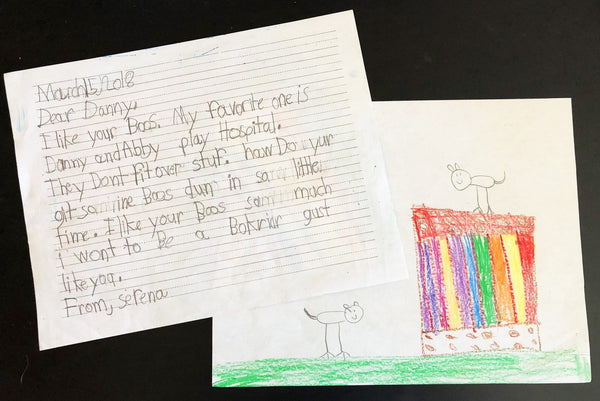 March 15, 2018
Dear Danny,
I like your Boos. My favorite one is
Danny and Abby play Hospital.
They Dont fit over stuf. how Do yur
git so mine Boos dwn in so little
time. I like your Boos so much
i wont to Be a Bokrier gust
like you.
From, serena